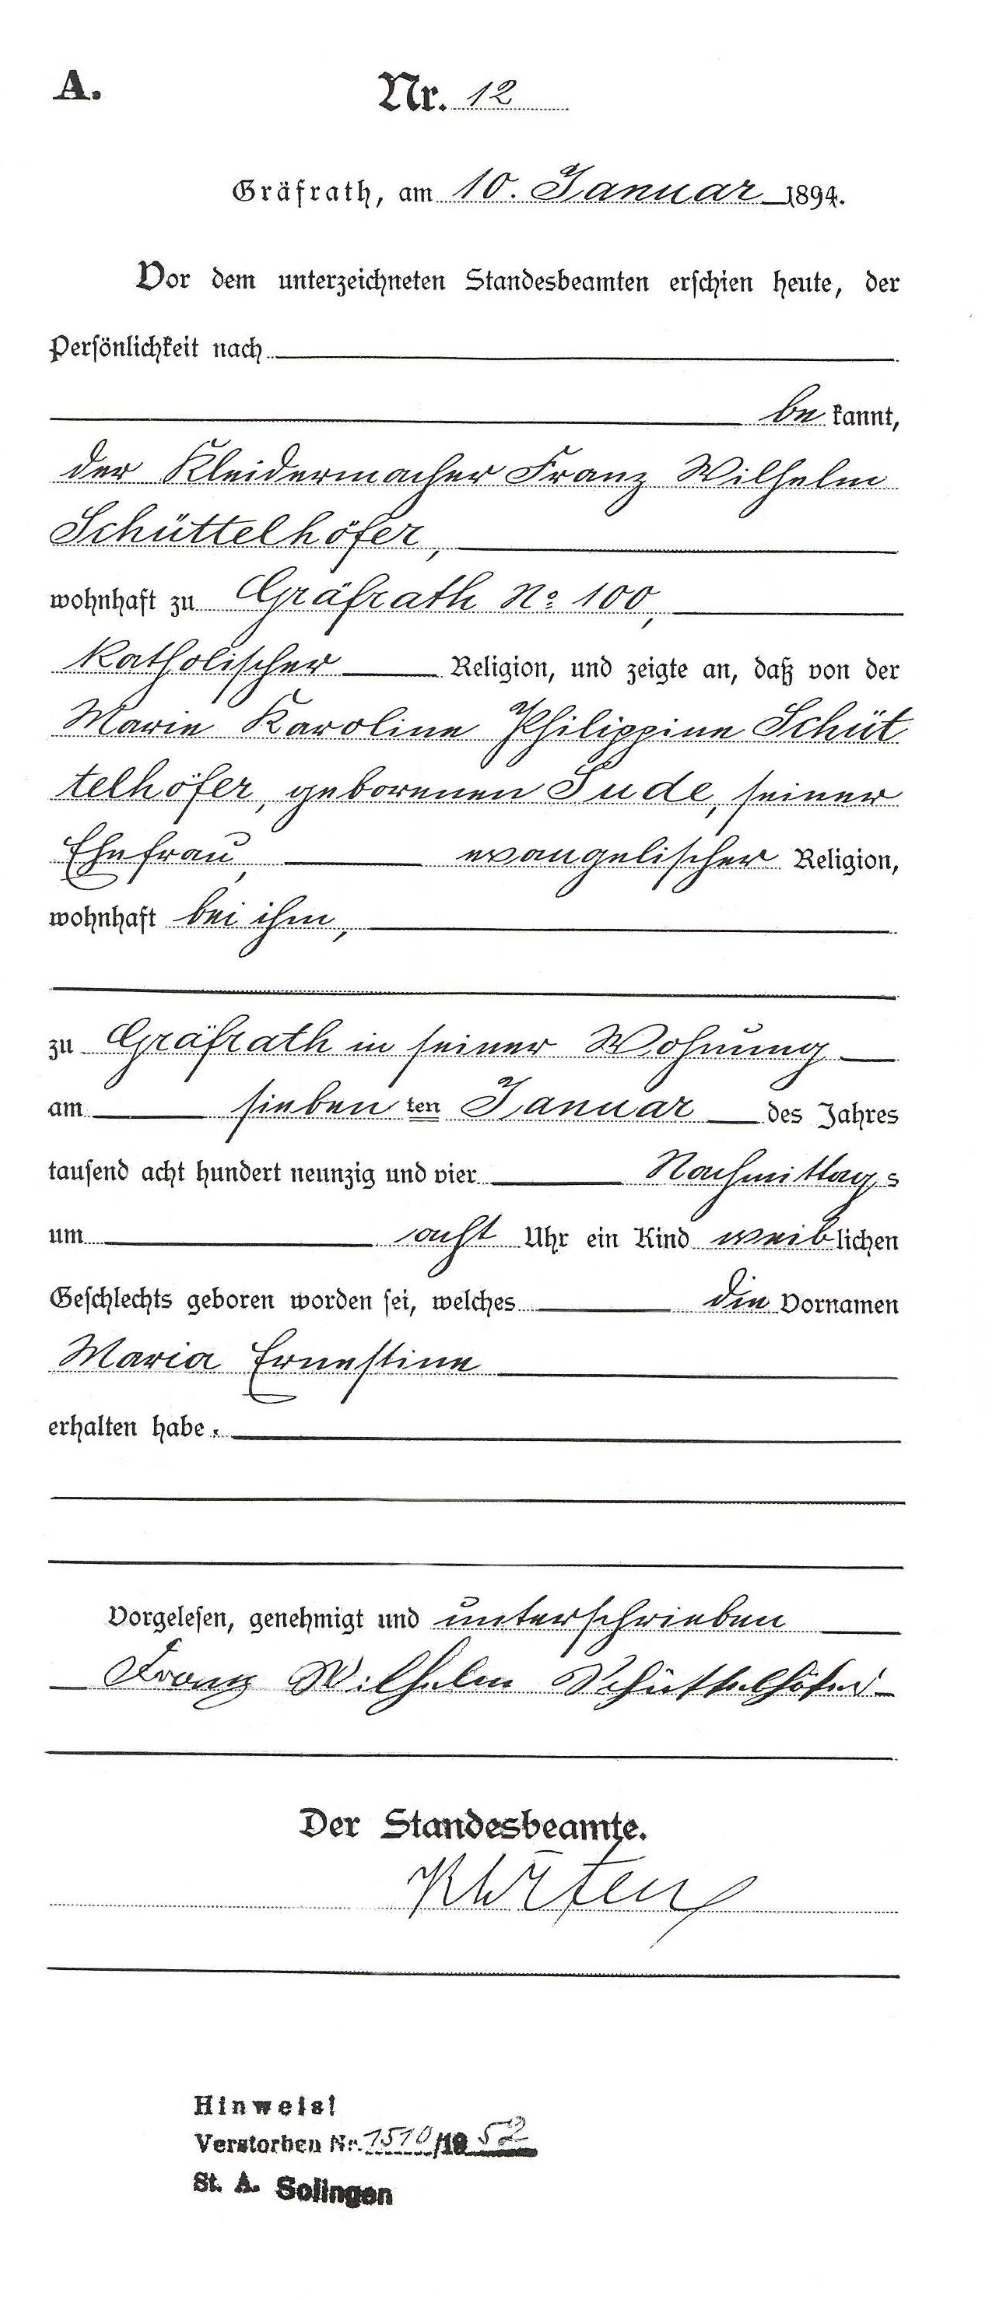 A.
Nr. 12
Gräfrath, am 10. Januar 1894.
Vor dem unterzeichneten Standesbeamten erschien heute, der
Persönlichkeit nach
be kannt,
der Kleidermacher Franz Wilhelm
Schüttelhöfer,
wohnhaft zu Gräfrath No 100,
katholischer Religion, und zeigte an, daß von der
Marie Karoline Philippine Schüt
telhöfer, geborenen Sude, seiner
Ehefrau, evangelischer Religion,
wohnhaft bei ihm,
zu Gräfrath in seiner Wohnung
am sieben ten Januar des Jahres
tausend acht hundert neunzig und vier Nachmittags
um acht Uhr ein Kind weiblichen
Geschlechts geboren worden sei, welches die Vornamen
Maria Ernestine
erhalten habe.
Vorgelesen, genehmigt und unterschrieben
Franz Wilhelm Schüttelhöfer
Der Standesbeamte.
Hinweis!
Verstorben Nr. 1510/1952
St. A. Solingen